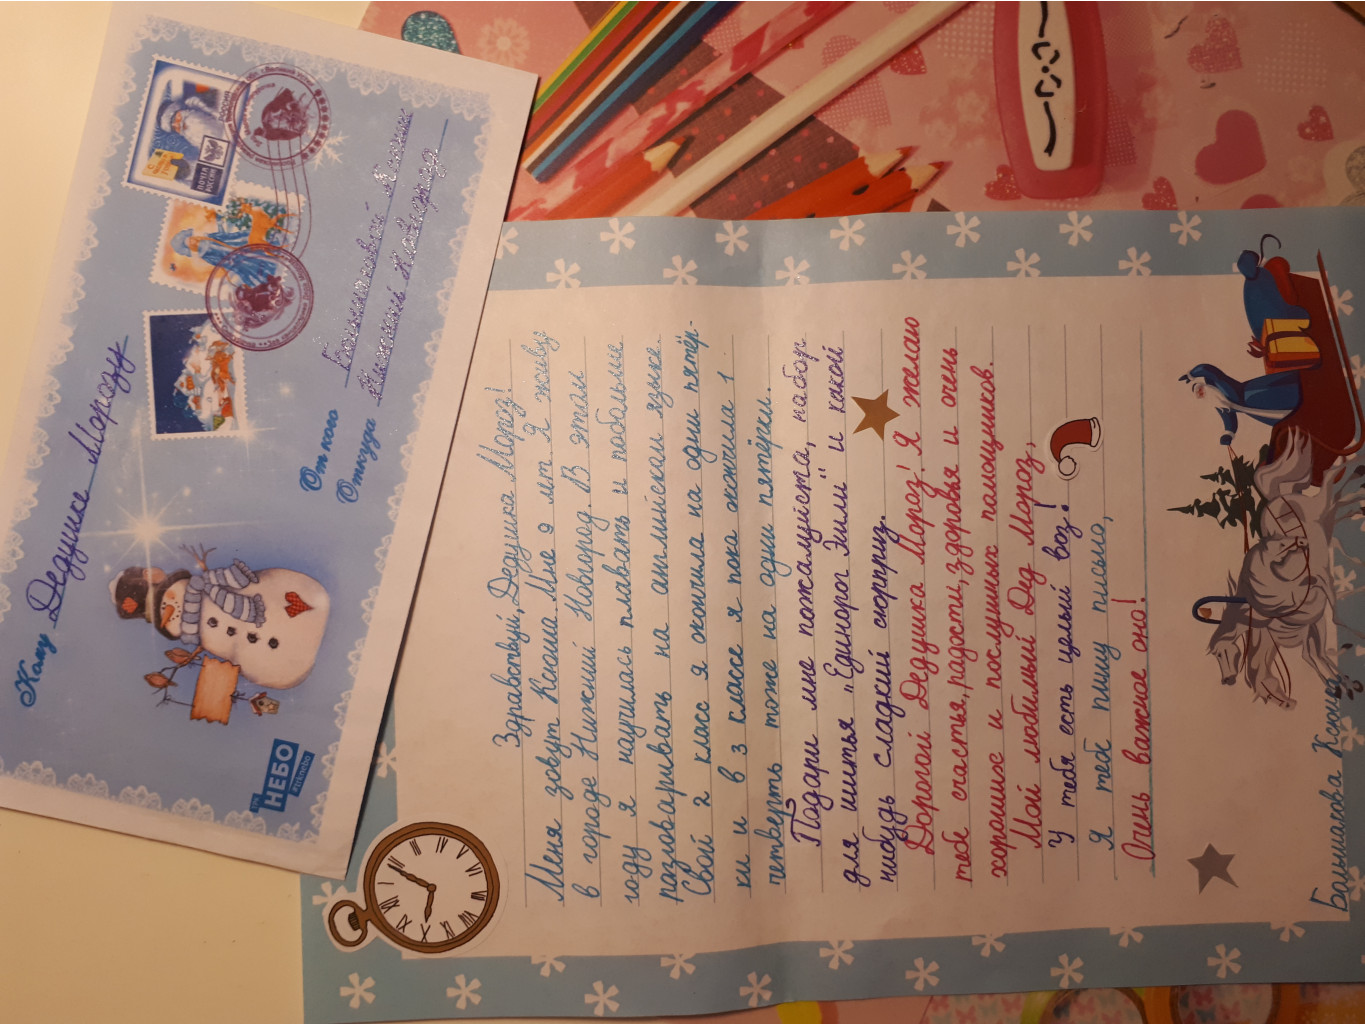 Кому Дедушке Морозу
От кого Балмасовой Ксении
Откуда Нижний Новгород
ПОЧТА РОССИИ
ТРК
НЕБО
#trknebo
Здравствуй, Дедушка Мороз!
Меня зовут Ксюша. Мне 9 лет. Я живу
в городе Нижний Новгород. В этом
году я научилась плавать и побольше
разговаривать на английском языке.
Свой 2 класс я окончила на одни пятёр-
ки и в 3 классе я пока окончила 1
четверть тоже на одни пятёрки.
Подари мне пожалуйста, набор
для шитья "Единорог Эмили" и какой
нибудь сладкий сюрприз.
Дорогой Дедушка Мороз! Я желаю
тебе счастья, радости, здоровья и очень
хороших и послушных помощников.
Мой любимый Дед Мороз,
У тебя есть целый воз!
Я тебе пишу письмо,
Очень важное оно!
Балмасова Ксения